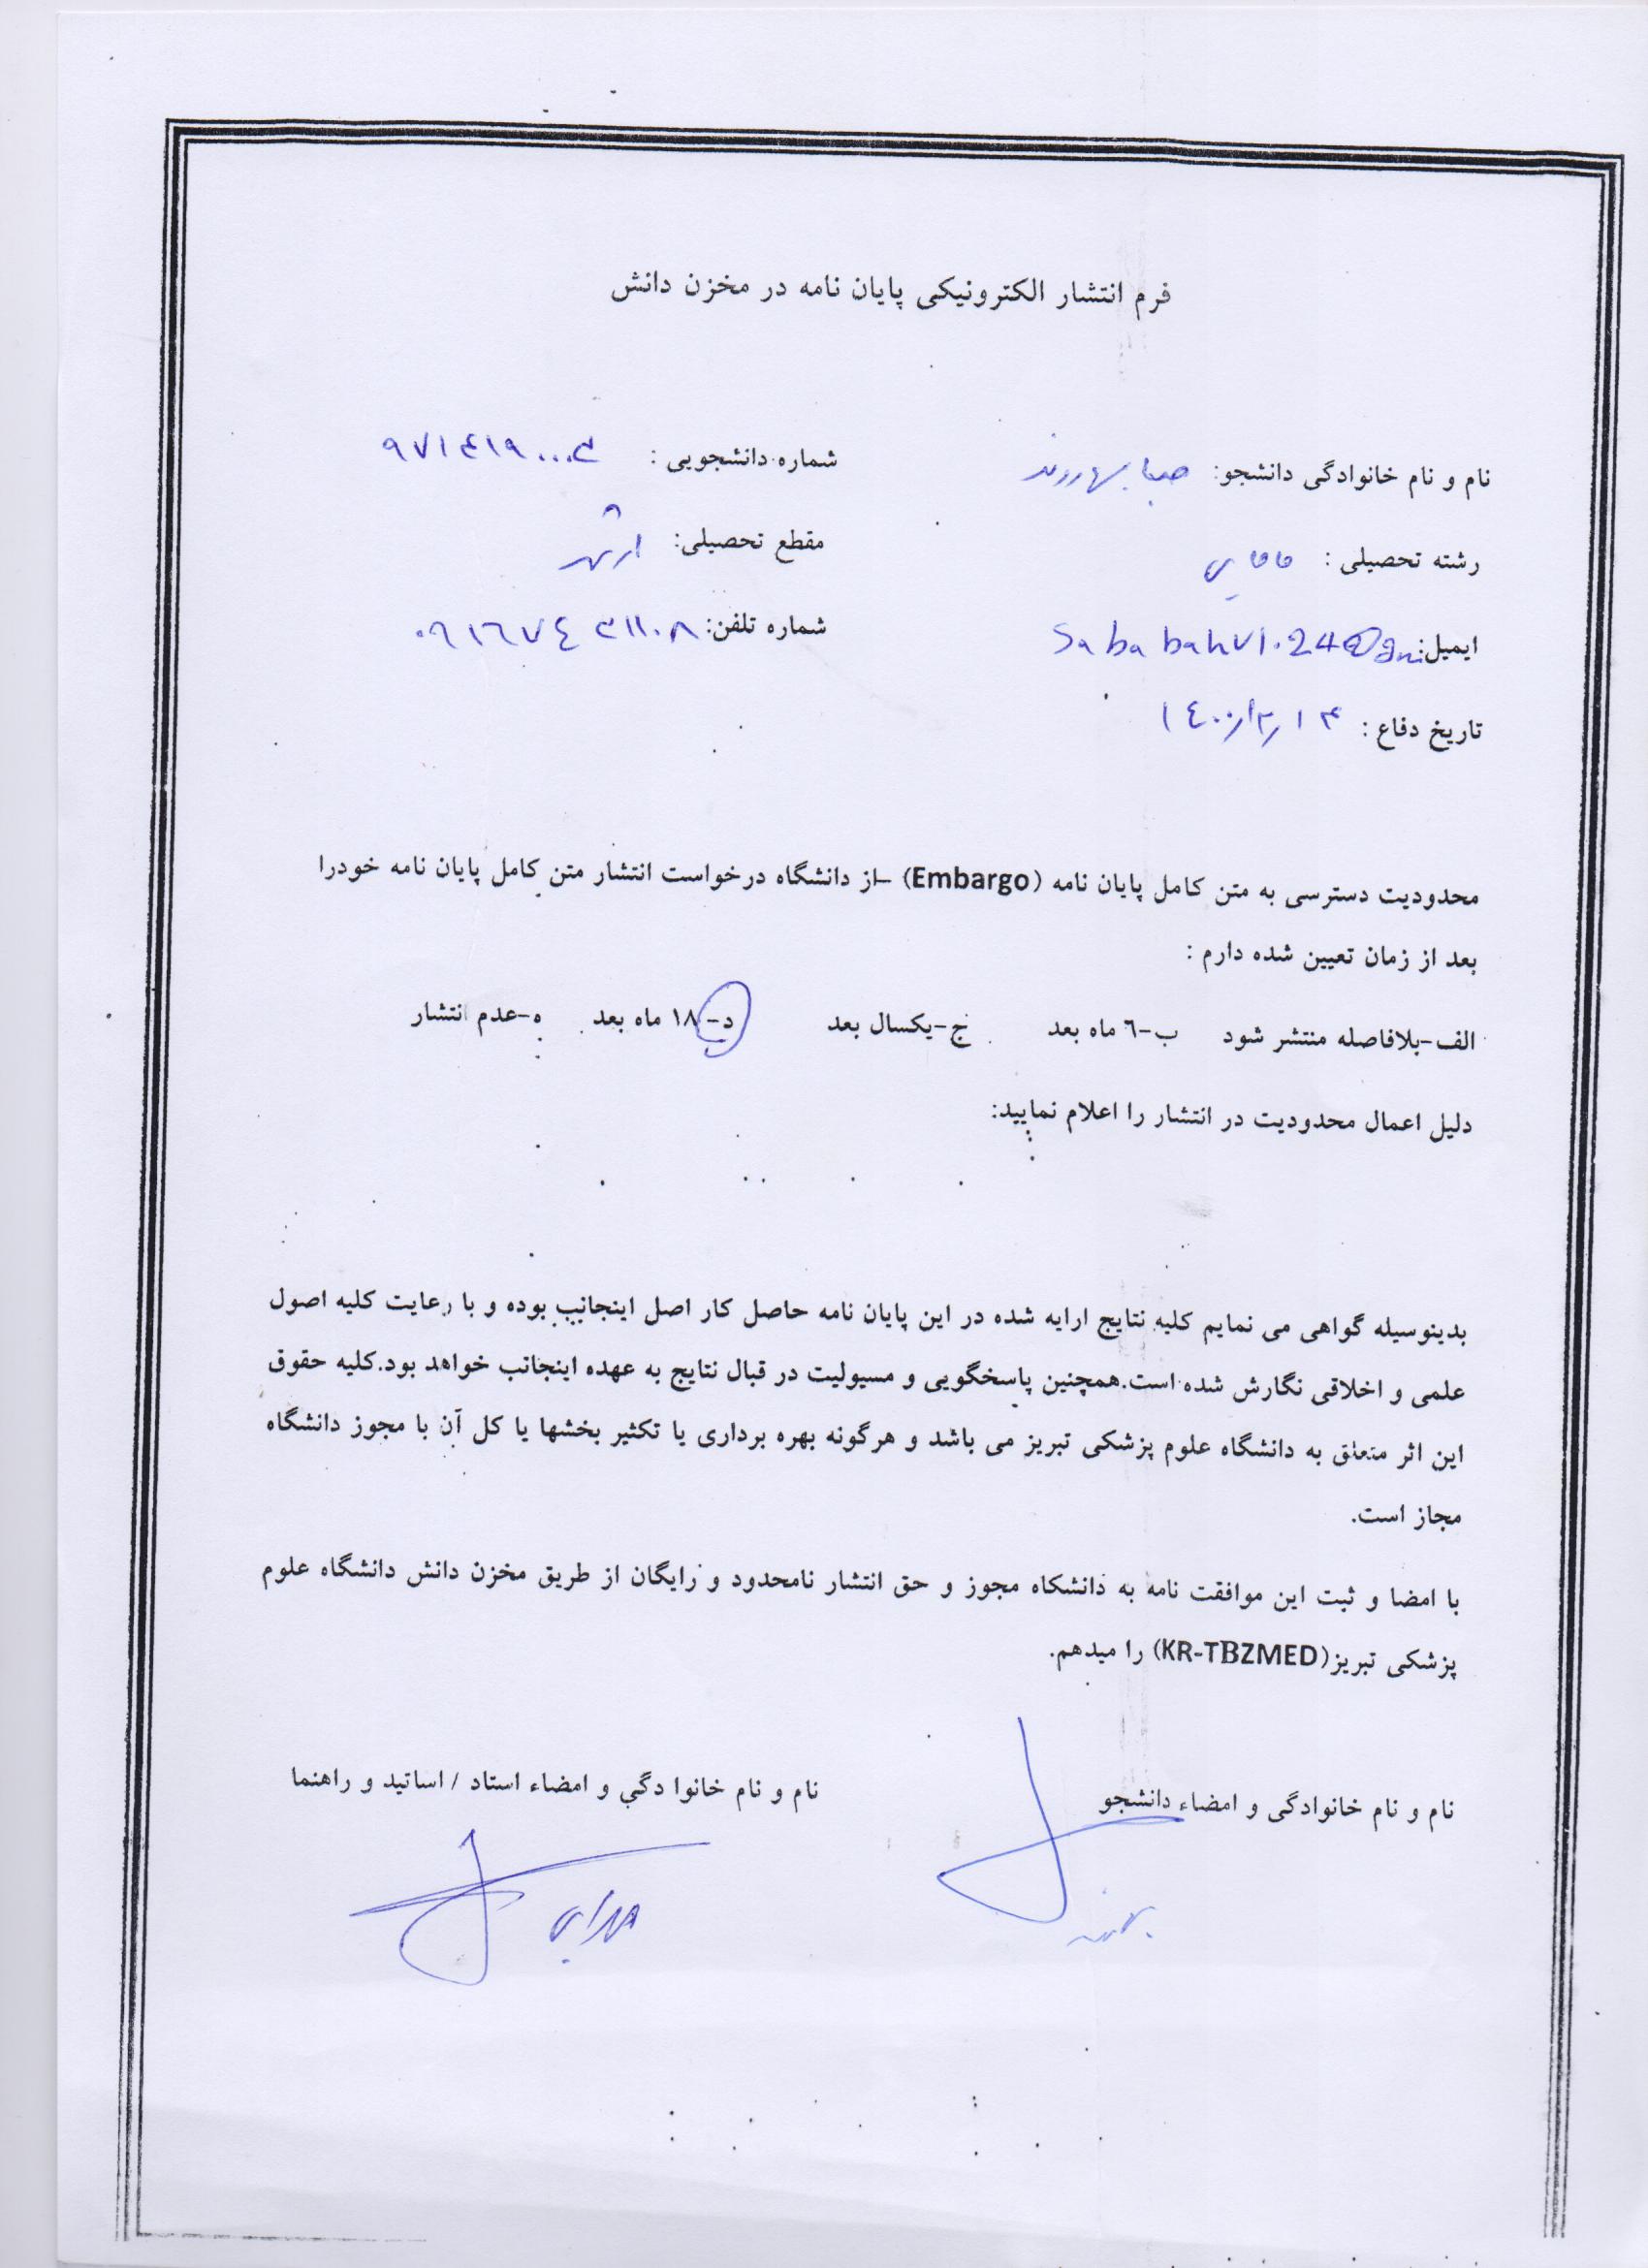 فرم انتشار الکترونیکی پایان نامه در مخزن دانش
نام و نام خانوادگی دانشجو: صبا بهاروند شماره دانشجویی :
رشته تحصیلی : مامایی مقطع تحصیلی: ارشد
ایمیل: شماره تلفن:
تاریخ دفاع :
محدودیت دسترسی به متن کامل پایان نامه (Embargo) –از دانشگاه درخواست انتشار متن کامل پایان نامه خودرا
بعد از زمان تعیین شده دارم :
الف-بلافاصله منتشر شود ب-٦ ماه بعد ج-یکسال بعد د-١٨ ماه بعد ه-عدم انتشار
دلیل اعمال محدودیت در انتشار را اعلام نمایید:
بدینوسیله گواهی می نمایم کلیه نتایج ارایه شده در این پایان نامه حاصل کار اصل اینجانب بوده و با رعایت کلیه اصول
علمی و اخلاقی نگارش شده است.همچنین پاسخگویی و مسیولیت در قبال نتایج به عهده اینجانب خواهد بود.کلیه حقوق
این اثر متعلق به دانشگاه علوم پزشکی تبریز می باشد و هرگونه بهره برداری یا تکثیر بخشها یا کل آن با مجوز دانشگاه
مجاز است.
با امضا و ثبت این موافقت نامه به دانشکاه مجوز و حق انتشار نامحدود و رایگان از طریق مخزن دانش دانشگاه علوم
پزشکی تبریز(KR-TBZMED) را میدهم.
نام و نام خانوادگی و امضاء دانشجو نام و نام خانوا دگی و امضاء استاد / اساتید و راهنما